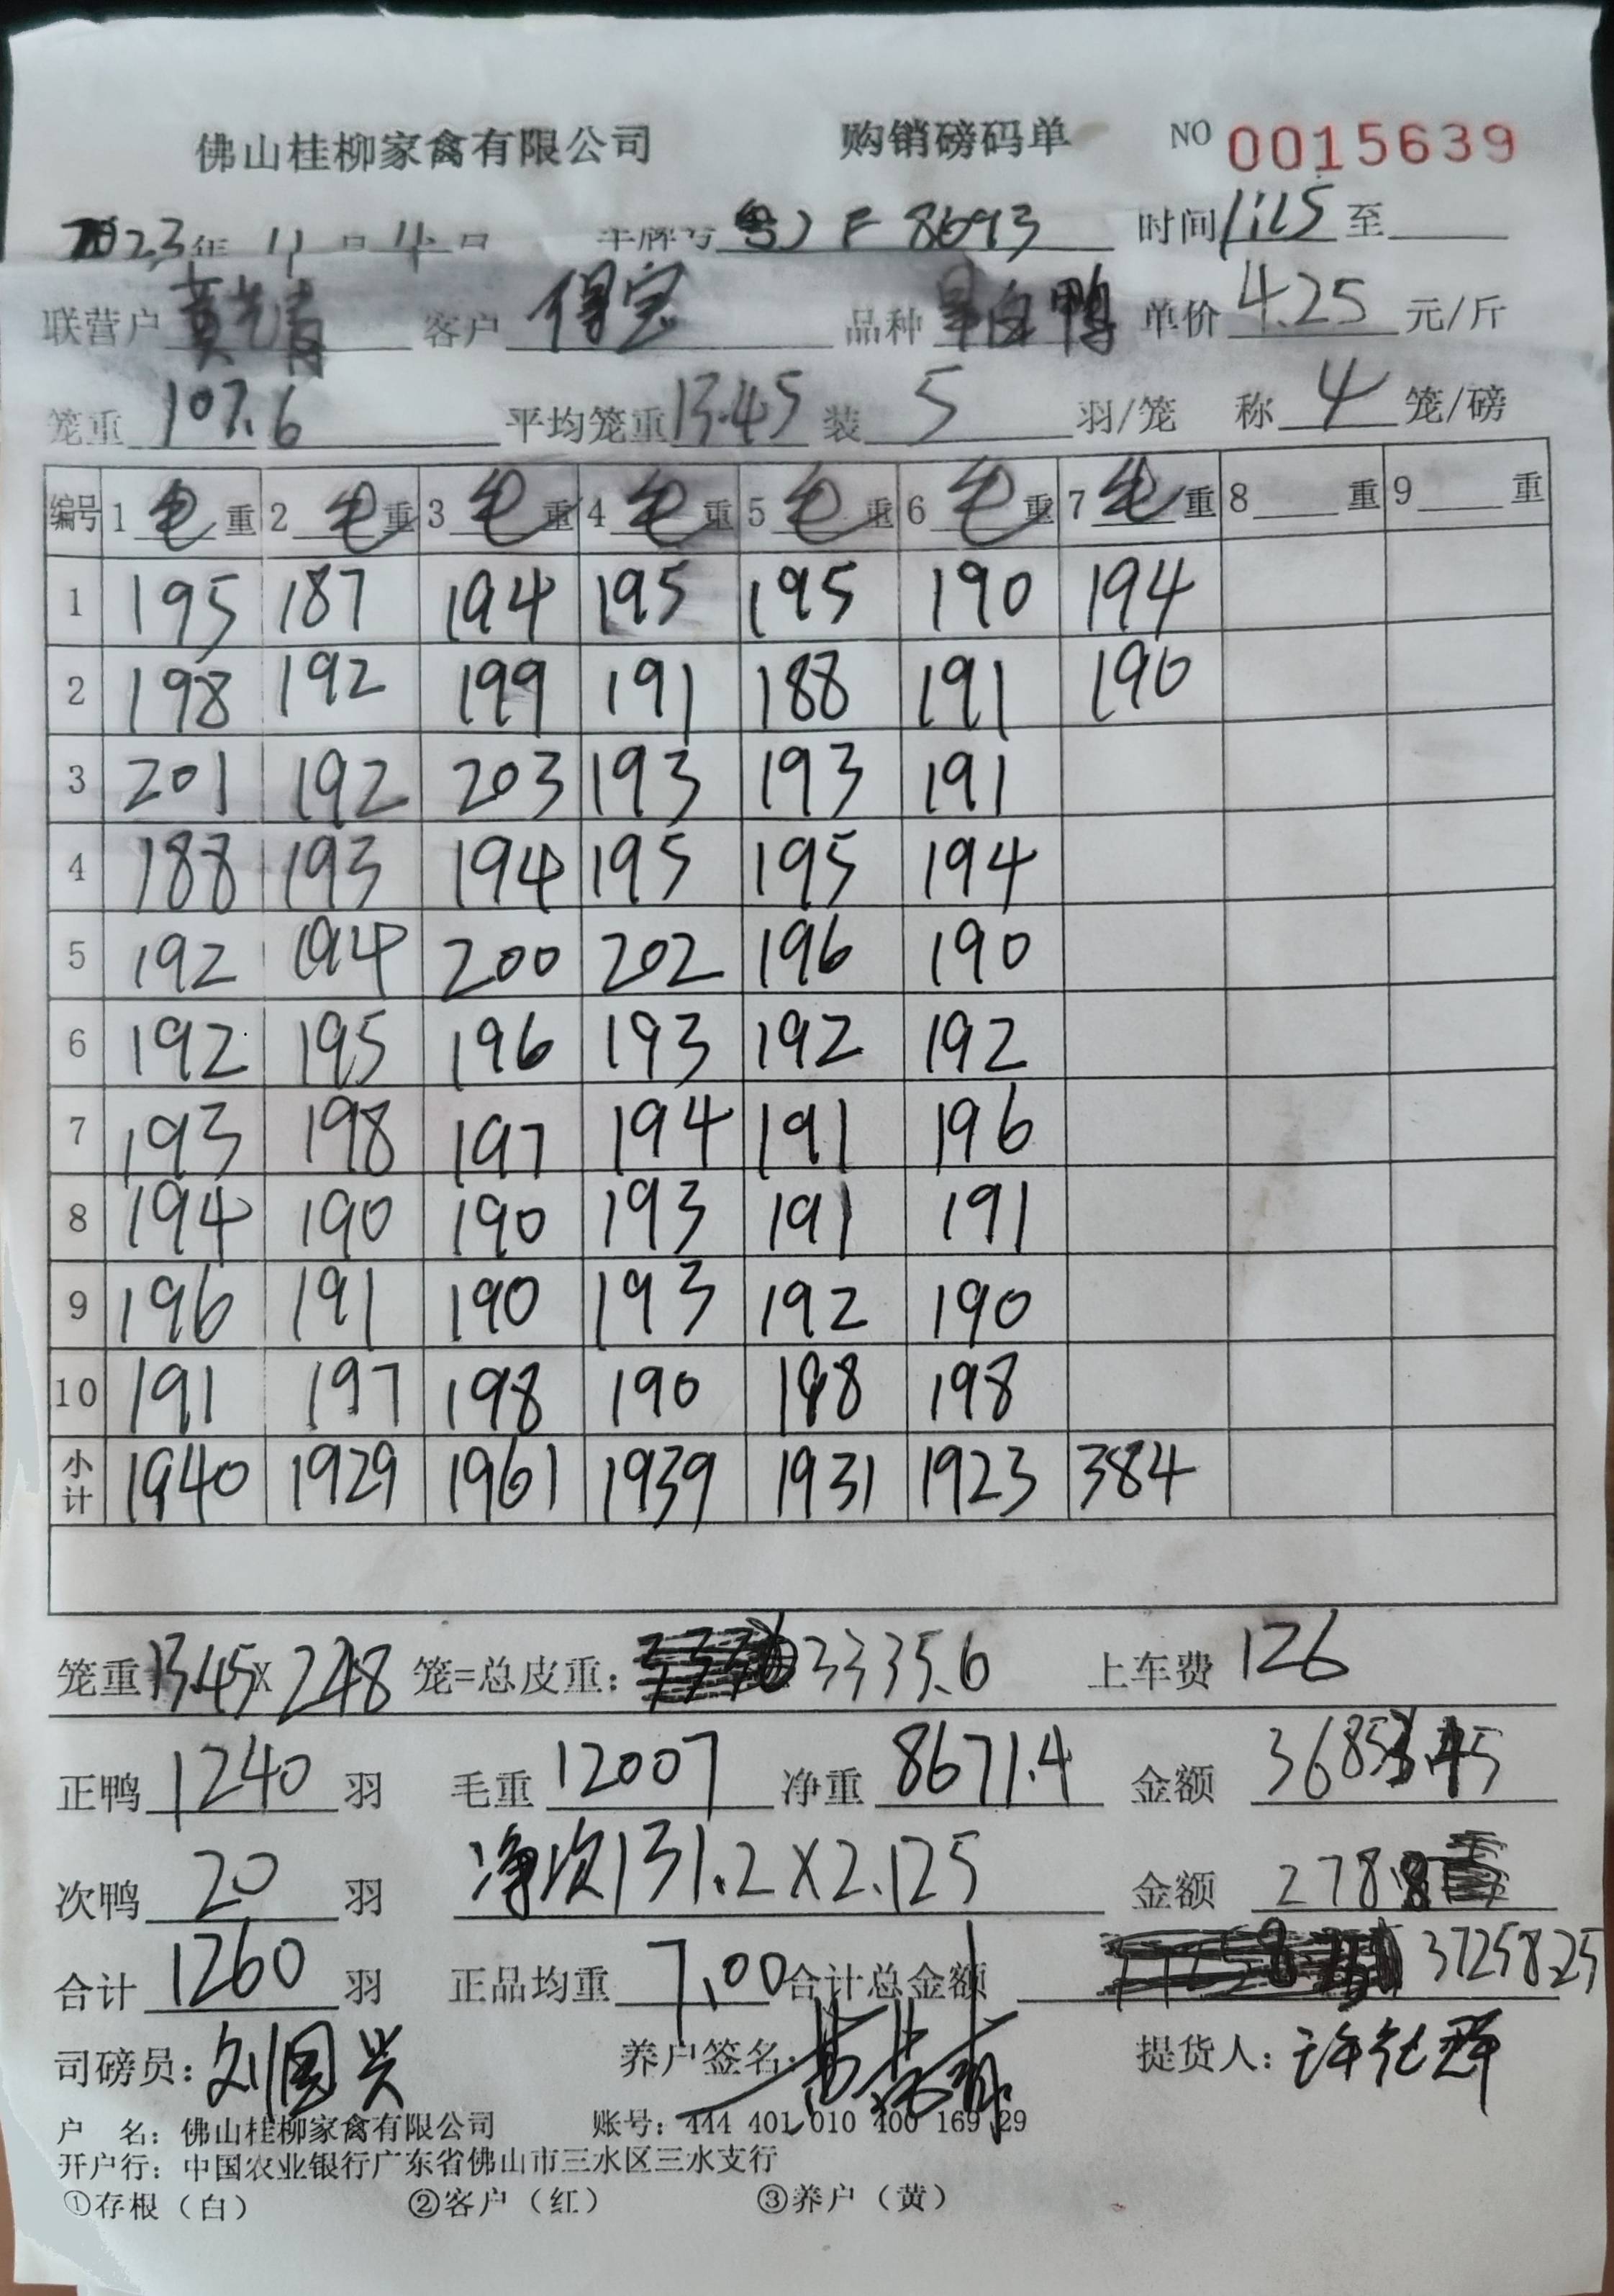 佛山桂柳家禽有限公司 购销磅码单 NO 0015639
2023年 11月 4日 车牌号 粤J F 8693 时间 1:15 至
联营户 黄志青 客户 得宝 品种 白鸭 单价 4.25 元/斤
笼重 107.6 平均笼重 13.45 装 5 羽/笼 称 4 笼/磅
编号 1 毛 重 2 毛 重 3 毛 重 4 毛 重 5 毛 重 6 毛 重 7 毛 重 8 重 9 重
1 195 187 194 195 195 190 194
2 198 192 199 191 188 191 190
3 201 192 203 193 193 191
4 188 193 194 195 195 194
5 192 194 200 202 196 190
6 192 195 196 193 192 192
7 193 198 197 194 191 196
8 194 190 190 193 191 191
9 196 191 190 193 192 190
10 191 197 198 190 198 198
小计 1940 1929 1961 1939 1931 1923 384
笼重 13.45 X 248 笼=总皮重: 3335.6 上车费 126
正鸭 1240 羽 毛重 12007 净重 8671.4 金额
次鸭 20 羽 净次 131.2 X 2.125 金额 278.8
合计 1260 羽 正品均重 7.00 合计总金额 37258.25
司磅员: 刘国兴 养户签名: 提货人:
户 名: 佛山桂柳家禽有限公司 账号: 444 401 010 400 169 29
开户行: 中国农业银行广东省佛山市三水区三水支行
①存根（白） ②客户（红） ③养户（黄）